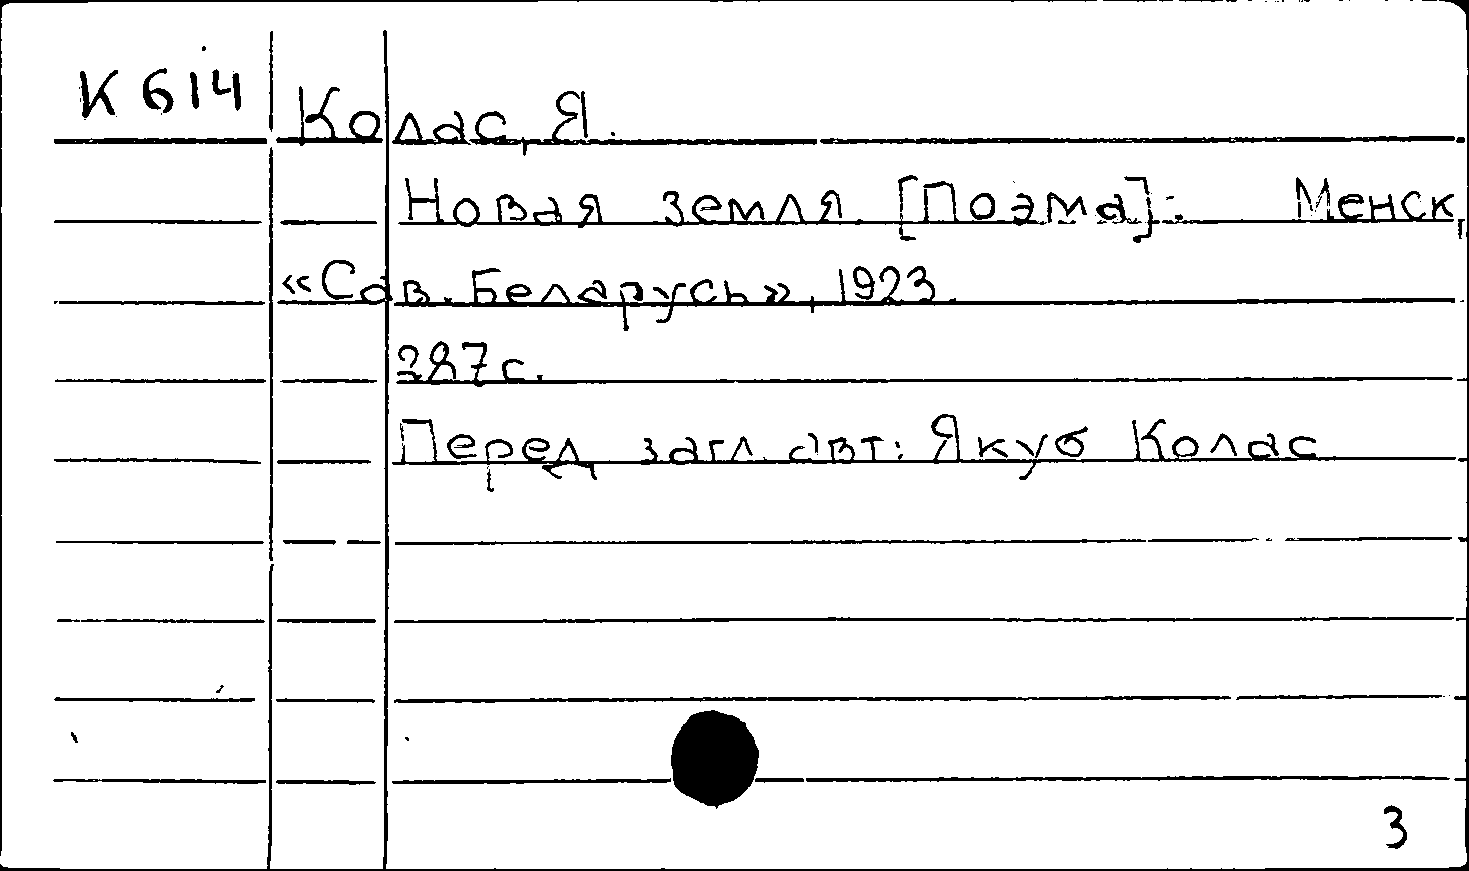 К 614
Колас, Я.
Новая земля. [Поэма]. Менск,
«Сав. Беларусь», 1923.
287 с.
Перед загл. авт.: Якуб Колас
3